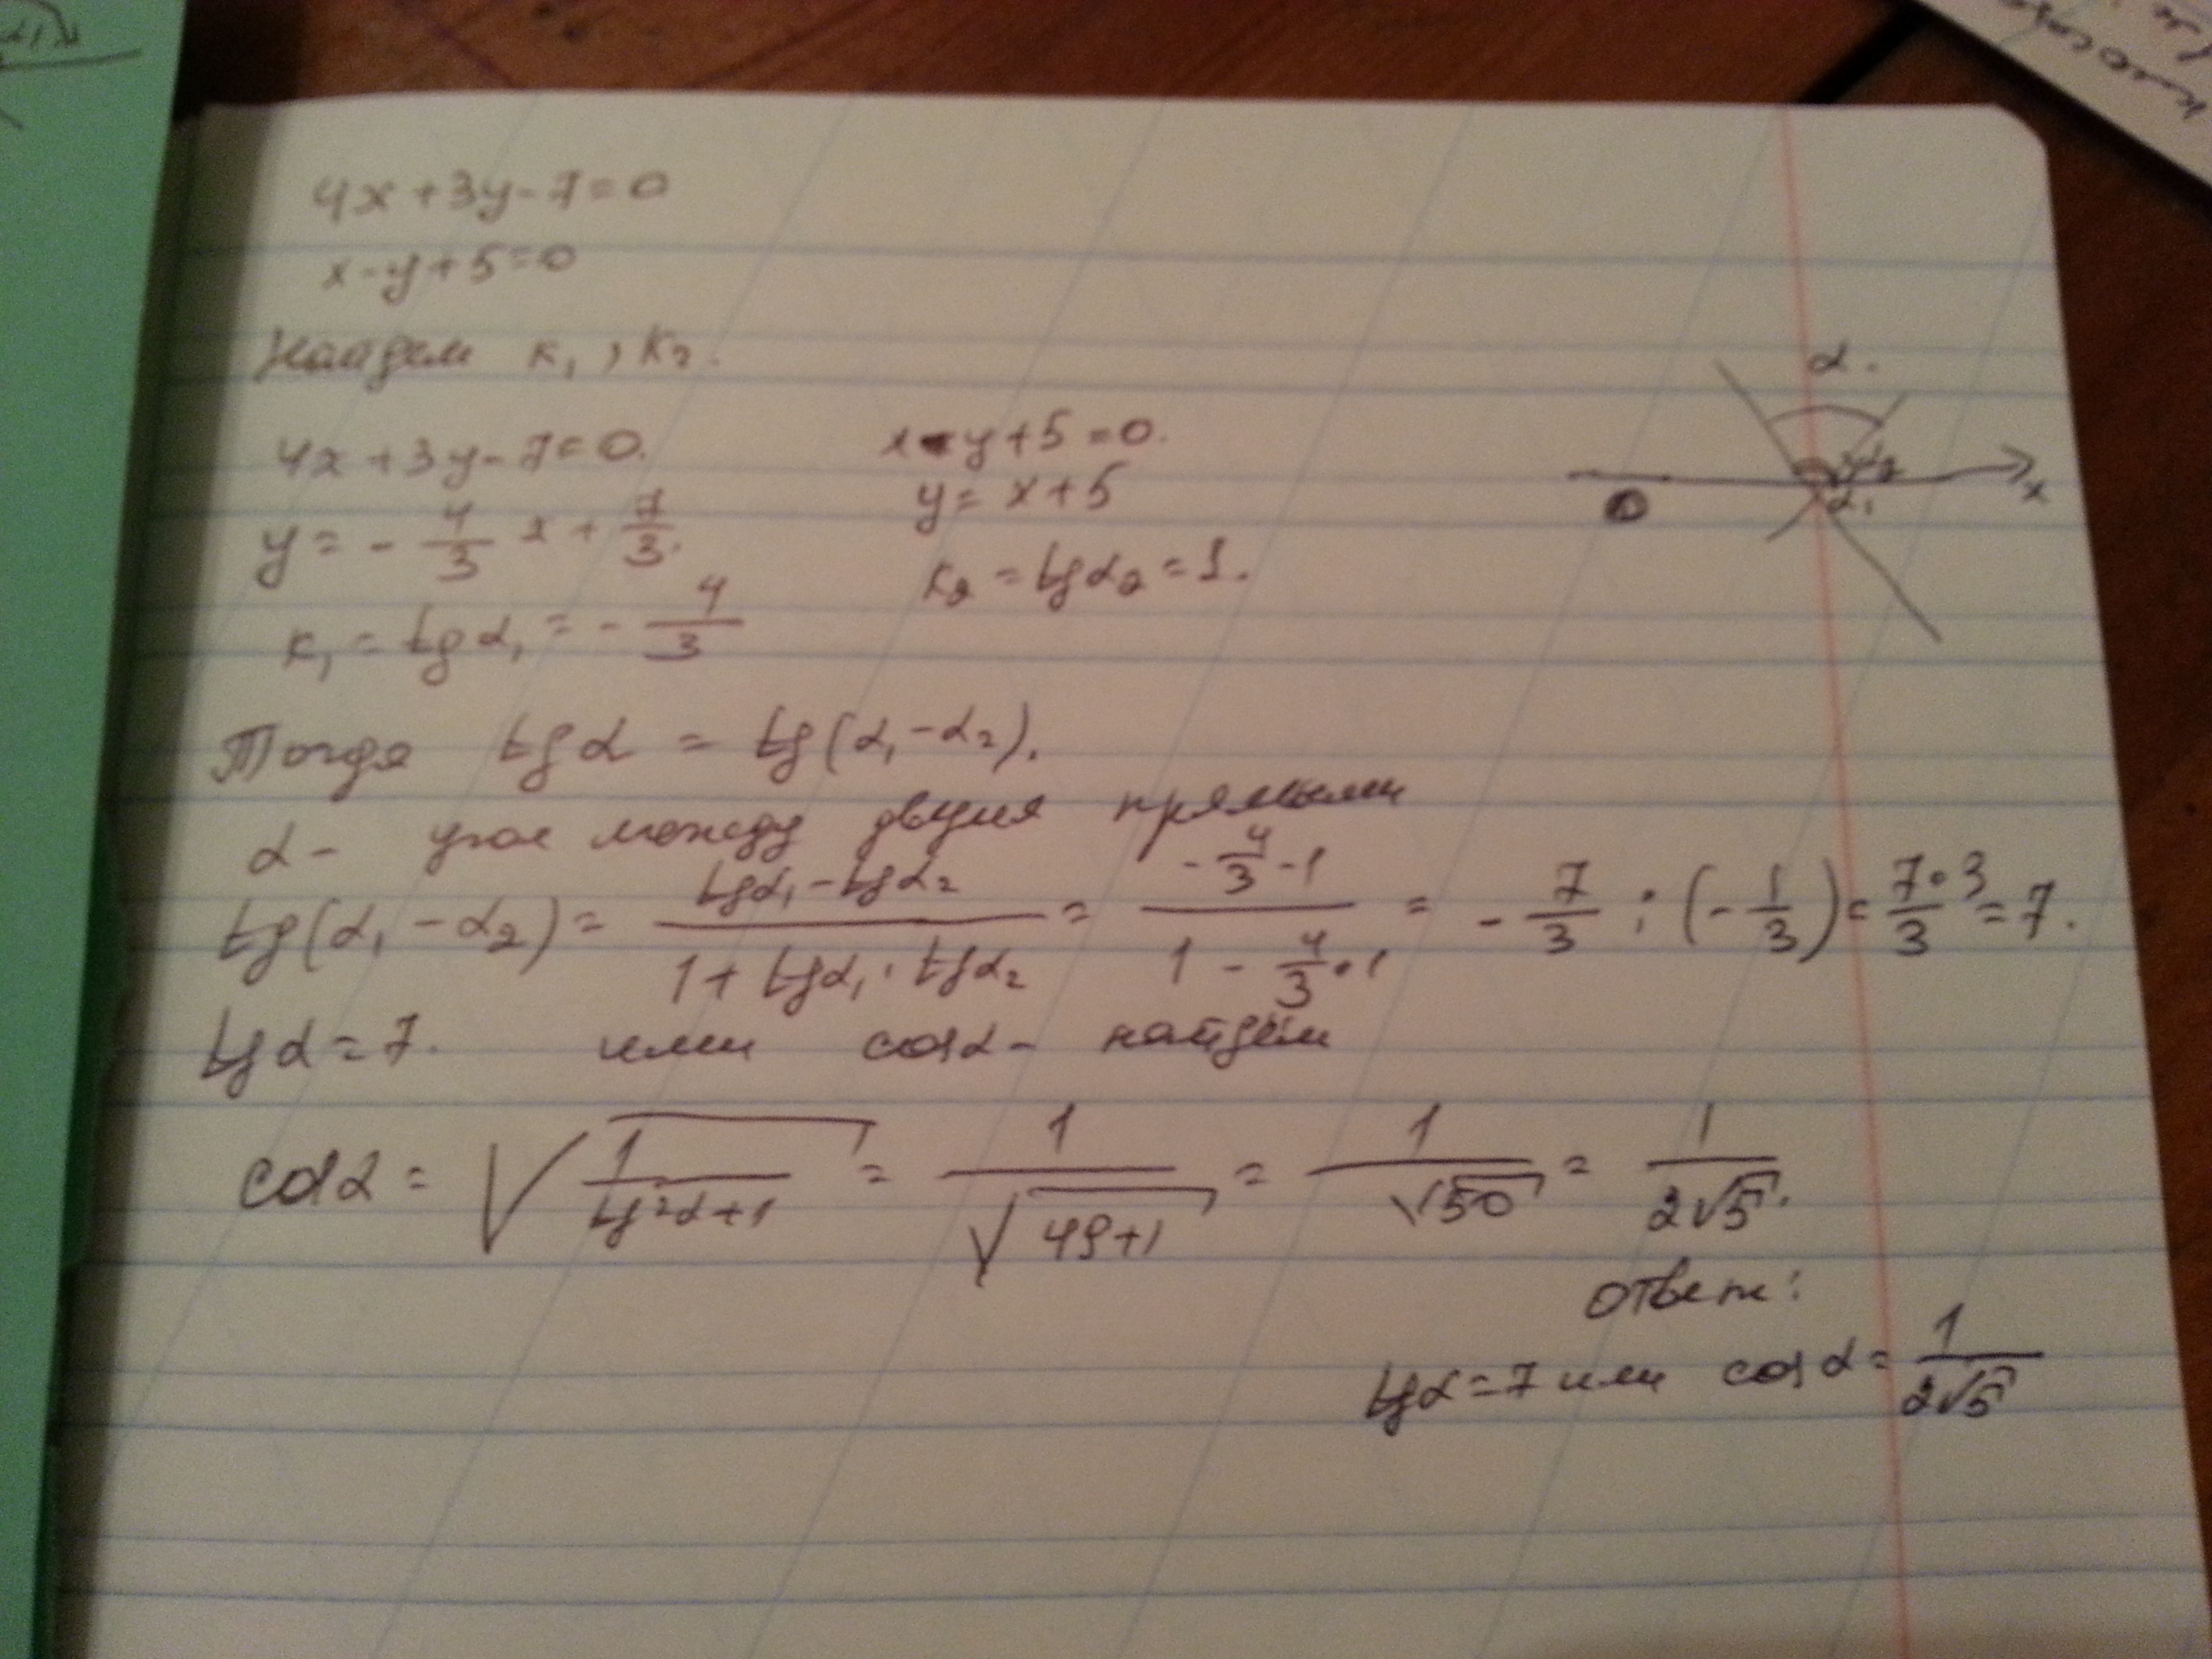 4x+3y-7=0
x-y+5=0
Найдем к₁, к₂.
4x+3y-7=0.
y = -4/3 x + 7/3.
к₁ = tgα₁ = -4/3
x-y+5=0.
y= x+5
к₂ = tgα₂ = 1.
α.
α₂
α₁
x
Тогда tgα = tg(α₁-α₂).
α - угол между двумя прямыми
tg(α₁-α₂) = (tgα₁-tgα₂)/(1+tgα₁·tgα₂) = (-4/3-1)/(1-4/3·1) = -7/3 : (-1/3) = 7·3/3 = 7.
tgα=7. или cosα- найдём
cosα = √(1/(tg²α+1)) = 1/√(49+1) = 1/√50 = 1/(2√5).
ответ:
tgα=7 или cosα = 1/(2√5)